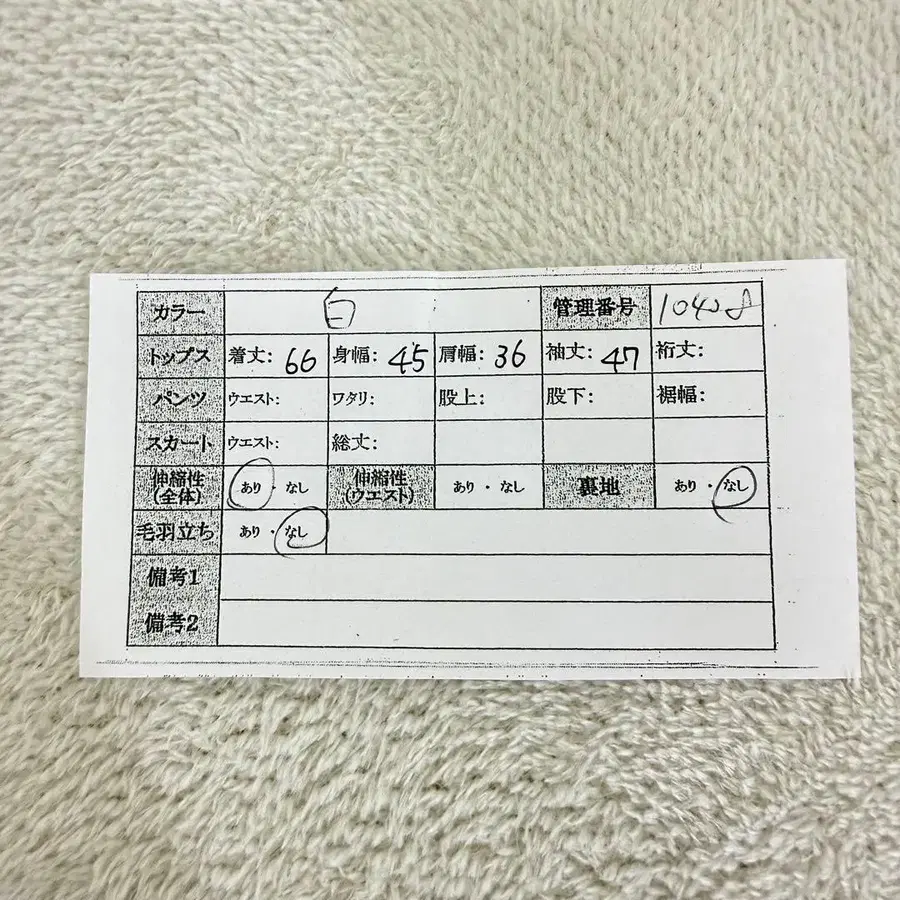 カラー 白 管理番号
トップス 着丈: 66 身幅: 45 肩幅: 36 袖丈: 47 裄丈:
パンツ ウエスト: ワタリ: 股上: 股下: 裾幅:
スカート ウエスト: 総丈:
伸縮性(全体) あり・なし 伸縮性(ウエスト) あり・なし 裏地 あり・なし
毛羽立ち あり・なし
備考1
備考2